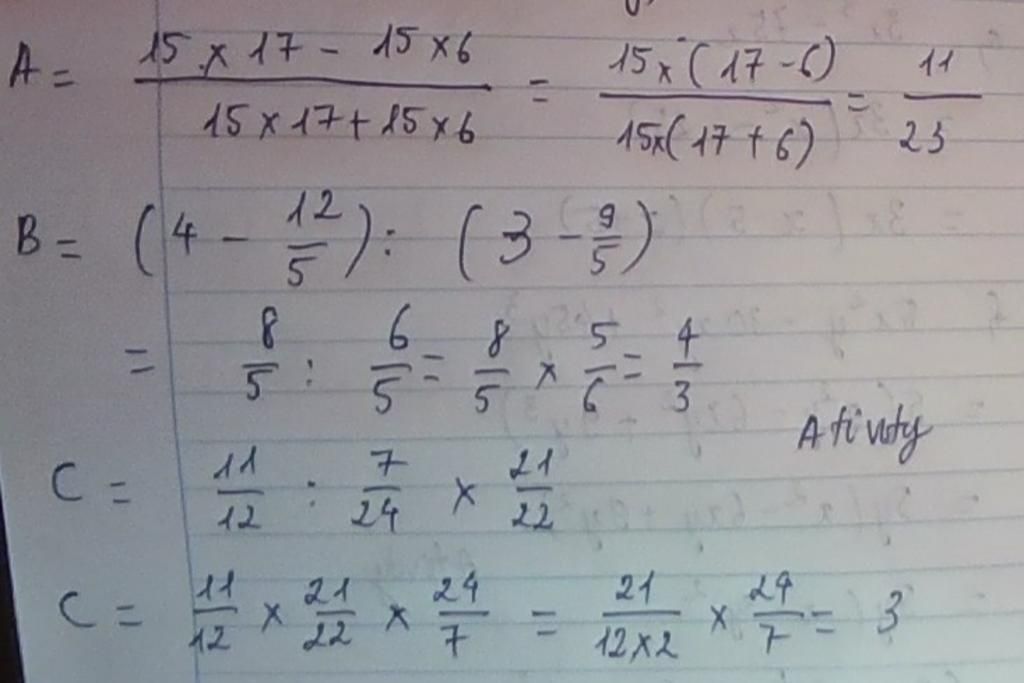 A = \frac{15 \times 17 - 15 \times 6}{15 \times 17 + 15 \times 6} = \frac{15 \times (17 - 6)}{15 \times (17 + 6)} = \frac{11}{23}
B = (4 - \frac{12}{5}) : (3 - \frac{9}{5})
= \frac{8}{5} : \frac{6}{5} = \frac{8}{5} \times \frac{5}{6} = \frac{4}{3}
C = \frac{11}{12} : \frac{7}{24} \times \frac{21}{22}
C = \frac{11}{12} \times \frac{21}{22} \times \frac{24}{7} = \frac{21}{12 \times 2} \times \frac{24}{7} = 3